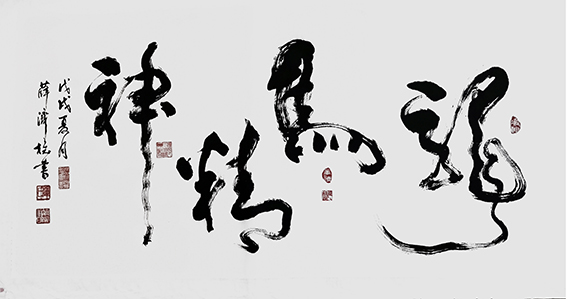 龍馬精神
戊戌夏月
薛澤<|fim_middle|>書